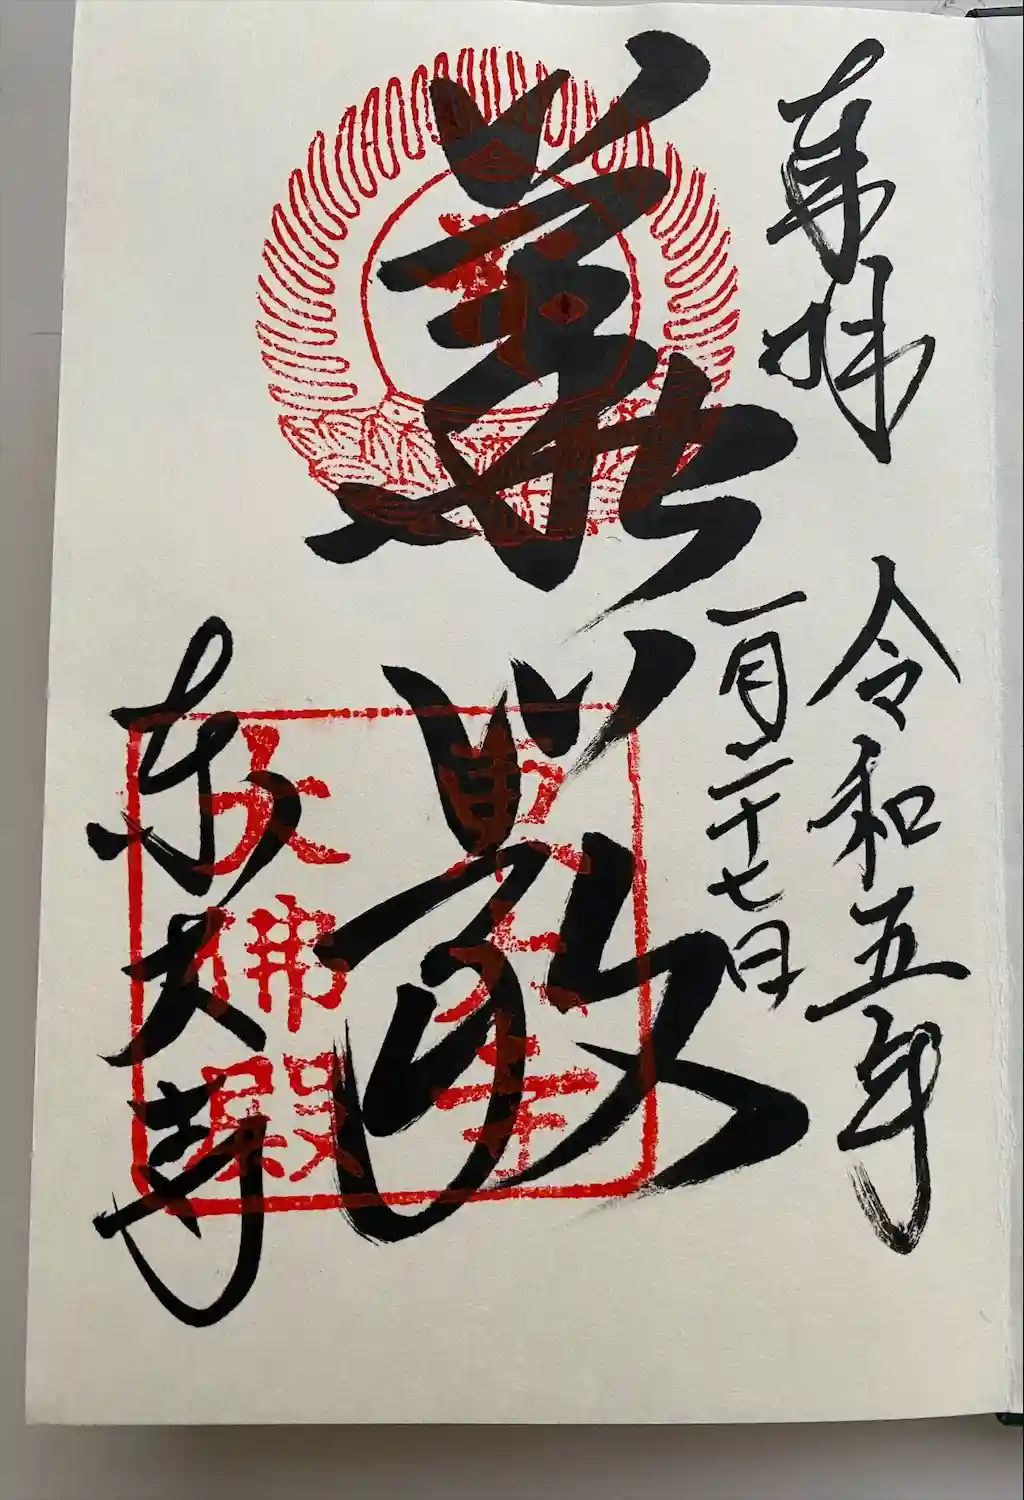 奉拝
令和五年
一月二十七日
華厳
東大寺
東大寺
大佛殿